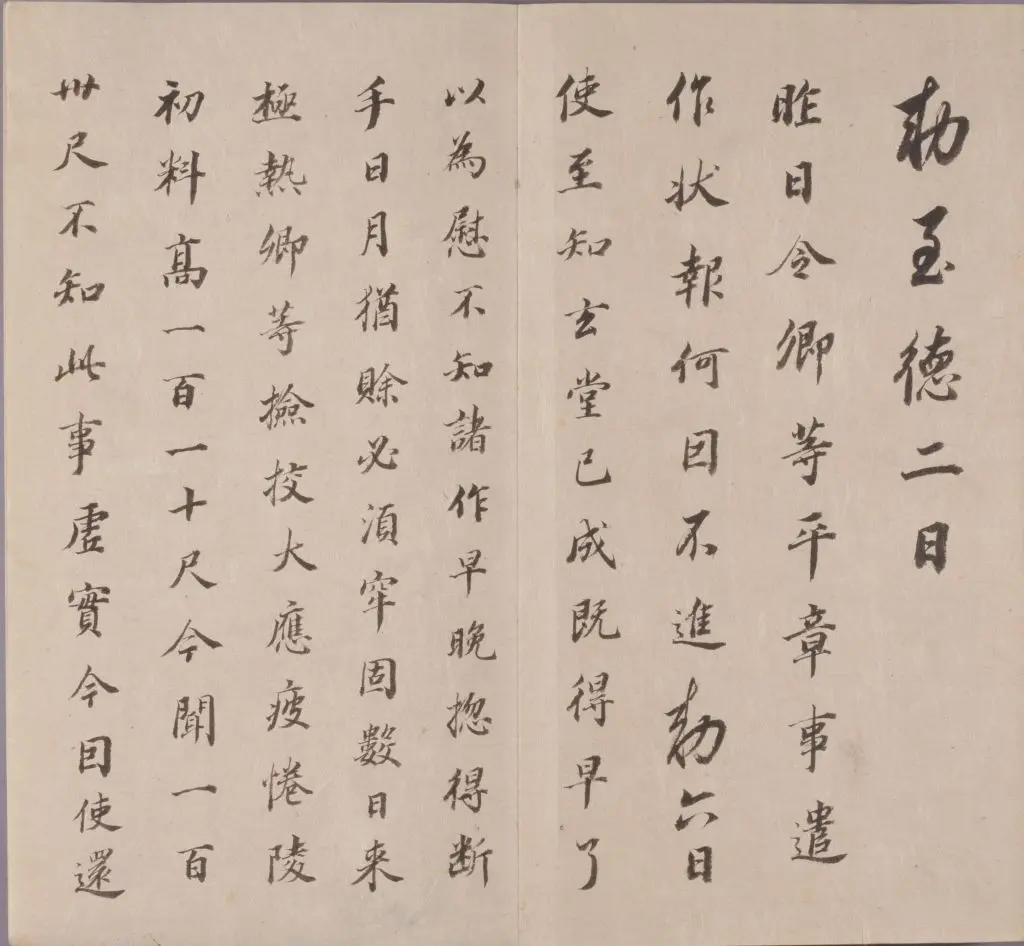 勅至德二日
昨日令卿等平章事遣
作状報何因不進勅六日
使至知玄堂已成既得早了
以為慰不知諸作早晚揔得断
手日月猶賒必須牢固數日来
極熱卿等撿挍大應疲惓陵
初料髙一百一十尺今聞一百
卅尺不知此事虛實今因使還